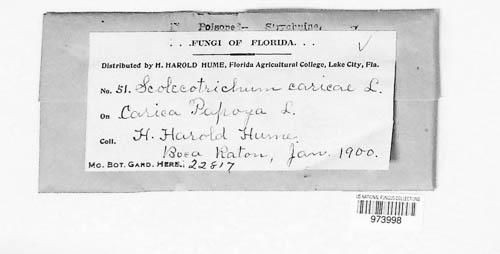 Poisoned— Strychnine,
. . .FUNGI OF FLORIDA. . .
Distributed by H. HAROLD HUME, Florida Agricultural College, Lake City, Fla.
No. 51. Scolecotrichum caricae L.
On Carica Papaya L.
Coll. H. Harold Hume.
Boca Raton, Jan. 1900.
MO. BOT. GARD. HERB. 22817
US NATIONAL FUNGUS COLLECTIONS
973998